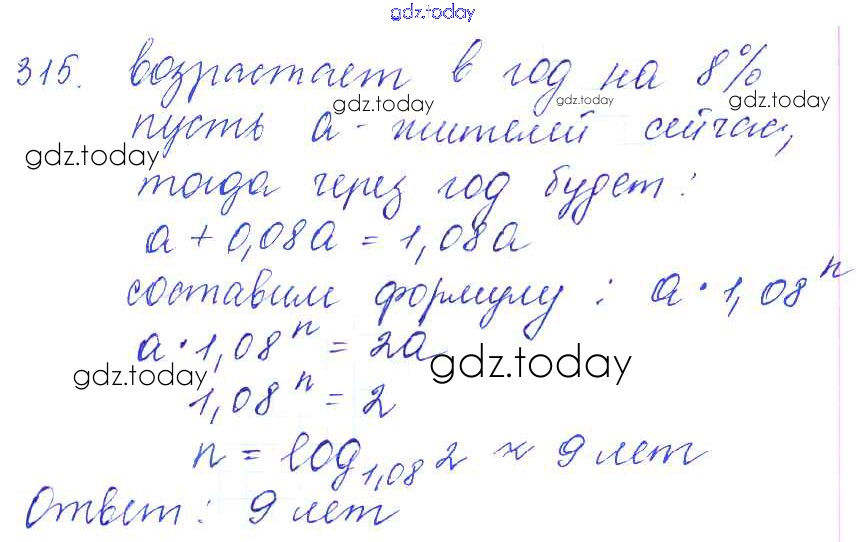 gdz.today
315. возрастает в год на 8%
gdz.today gdz.today gdz.today
пусть a - жителей сейчас,
gdz.today
тогда через год будет:
a + 0,08a = 1,08a
составим формулу : a · 1,08^n
a · 1,08^n = 2a
gdz.today gdz.today
1,08^n = 2
n = log_{1,08} 2 ≈ 9 лет
Ответ: 9 лет